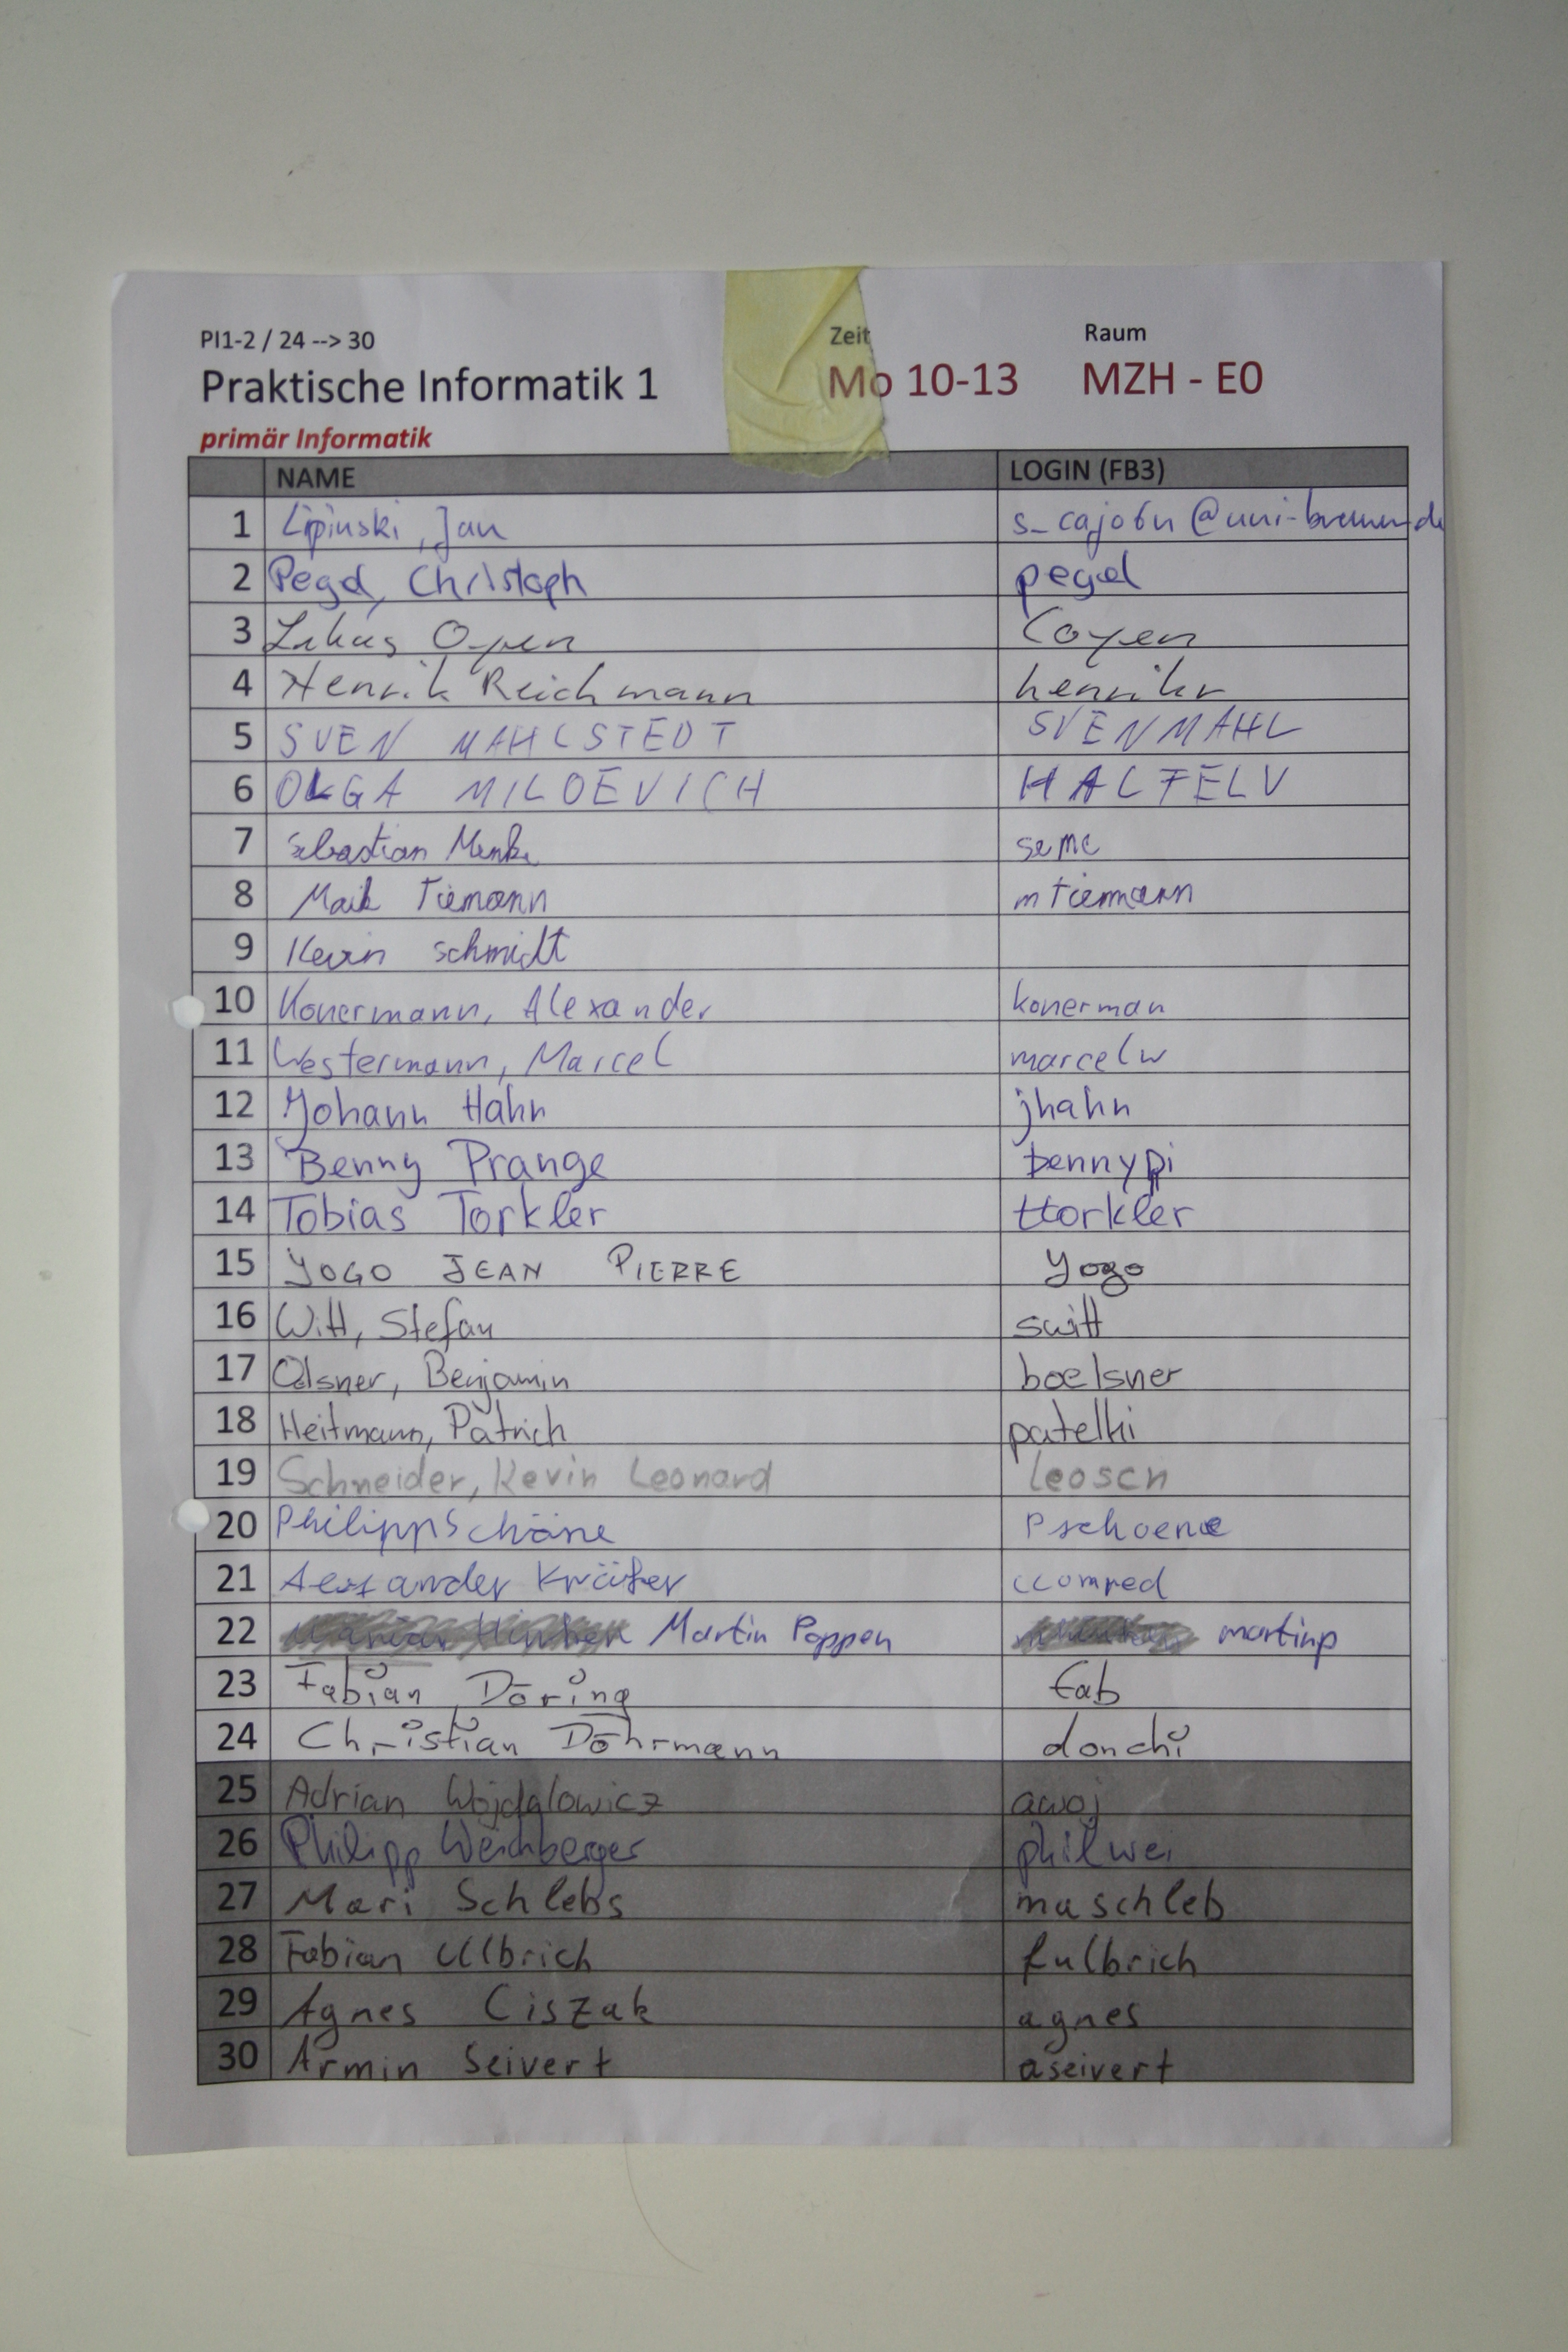 PI1-2 / 24 --> 30 Zeit Raum
Praktische Informatik 1 Mo 10-13 MZH - E0
primär Informatik
NAME LOGIN (FB3)
1 Lipinski, Jan s_cajo6n@uni-bremen.de
2 Pegel, Christoph pegel
3 Lukas Oyen loyen
4 Henrik Reichmann henrikr
5 SVEN MAHLSTEDT SVENMAHL
6 OLGA MILOEVICH HALFELV
7 Sebastian Menke seme
8 Maik Tiemann mtiemann
9 Kevin Schmidt
10 Konermann, Alexander konerman
11 Westermann, Marcel marcelw
12 Johann Hahn jhahn
13 Benny Prange bennypi
14 Tobias Torkler ttorkler
15 YOGO JEAN PIERRE yogo
16 Witt, Stefan switt
17 Oelsner, Benjamin boelsner
18 Heitmann, Patrick patelhi
19 Schneider, Kevin Leonard leosch
20 Philipp Schöne pschoene
21 Alexander Kräfer ccomred
22 Martin Poppen martinp
23 Fabian Döring fab
24 Christian Döhrmann donchi
25 Adrian Wojdalowicz awoj
26 Philipp Weichberger philwei
27 Mari Schlebs maschleb
28 Fabian Ulbrich fulbrich
29 Agnes Ciszak agnes
30 Armin Seivert aseivert